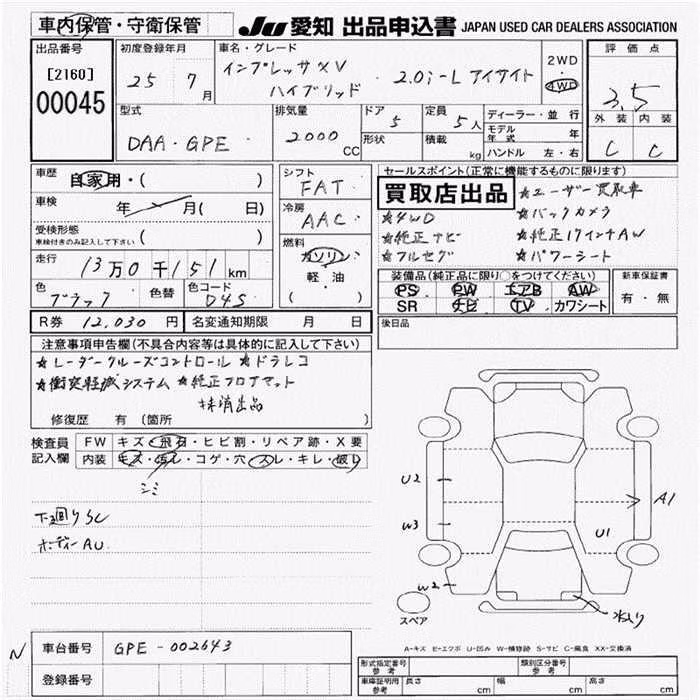 車内保管・守衛保管
JU 愛知 出品申込書 JAPAN USED CAR DEALERS ASSOCIATION
出品番号
[2160]
00045
初度登録年月
25 7月
車名・グレード
インプレッサXV
ハイブリッド
2.0i-L アイサイト
2WD
4WD
評価点
3.5
外装 内装
C C
型式
DAA・GPE
排気量
2000
CC
ドア 5
形状
定員 5人
積載 kg
ディーラー・並行
モデル年式 年
ハンドル 左・右
車歴 自家用・( )
車検 年 月( 日)
受検形態
車検付きのみ記入して下さい ( )
走行 13万0千151km
色 ブラック 色替 色コード D4S
シフト
FAT
冷房
AAC
燃料
ガソリン
軽・油
( )
セールスポイント(正常に機能するものに限ります)
買取店出品
★ユーザー買取車
★4WD ★バックカメラ
★純正ナビ ★純正17インチAW
★フルセグ ★パワーシート
装備品(純正品に限り○をつけてください)
PS PW エアB AW
SR ナビ TV カワシート
新車保証書
有・無
R券 12,030円 名変通知期限 月 日
後日品
注意事項申告欄(不具合内容等は具体的に記入して下さい)
★レーダークルーズコントロール ★ドラレコ
★衝突軽減システム ★純正フロアマット
抹消出品
修復歴 有 (箇所 )
検査員記入欄
FW キズ・飛石・ヒビ割・リペア跡・X要
内装 キズ・汚レ・コゲ・穴・スレ・キレ・破レ
シミ
下回りSC
ボディーAU
U2
W3
W2
U1
A1
水入り
スペア
A-キズ E-エクボ U-凹み W-補修跡 S-サビ C-腐食 XX-交換済
N
車台番号 GPE-002643
登録番号
形式指定番号 参考
類別区分番号 参考
車庫証明用 参考 長さ cm 幅 cm 高さ cm